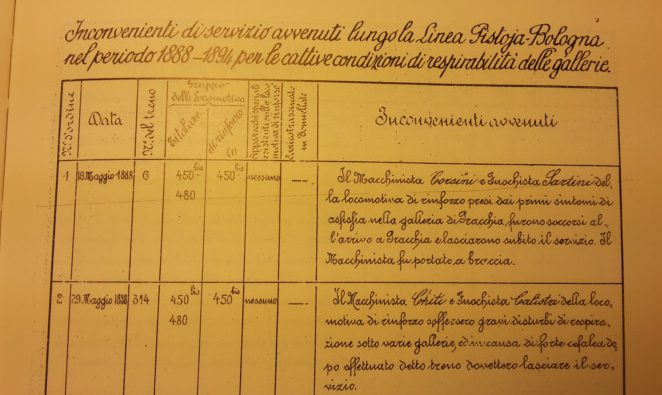 Inconvenienti di servizio avvenuti lungo la Linea Pistoja-Bologna
nel periodo 1888-1894 per le cattive condizioni di respirabilità delle gallerie.
N.° d'ordine
Data
N. del treno
Gruppo
della Locomotiva
titolare
di rinforzo
(1)
Apparecchi speciali
esistenti sulla loco
motiva di rinforzo
in
Inconvenienti avvenuti
1
18 Maggio 1888
6
450 bis
480
450 bis
nessuno
—
Il Macchinista Corsini e Fuochista Sartini del-
la locomotiva di rinforzo presi dai primi sintomi di
asfissia nella galleria di Pracchia, furono soccorsi al-
l'arrivo a Pracchia e lasciarono subito il servizio. Il
Macchinista fu portato, a braccia.
2
29 Maggio 1888
314
450 bis
480
450 bis
nessuno
—
Il Macchinista Chiti e Fuochista Calistri della loco-
motiva di rinforzo soffersero gravi disturbi di respira-
zione sotto varie gallerie, ed in causa di forte cefalea do,
po effettuato detto treno dovettero lasciare il ser-
vizio.